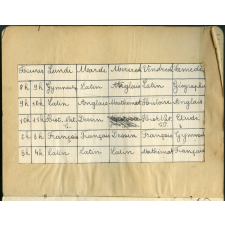 Heures Lundi Mardi Mercredi Vendredi Samedi
8h 9h Gymnas Latin Anglais Latin Géographie
9h 10h Latin Anglais Mathémat Histoire Anglais
10h 11h Hist. Nat. Dessin Hist. Nat. Etude
2h 3h Français Français Dessin Français Gymnas
3h 4h Latin Latin Latin Mathémat Français